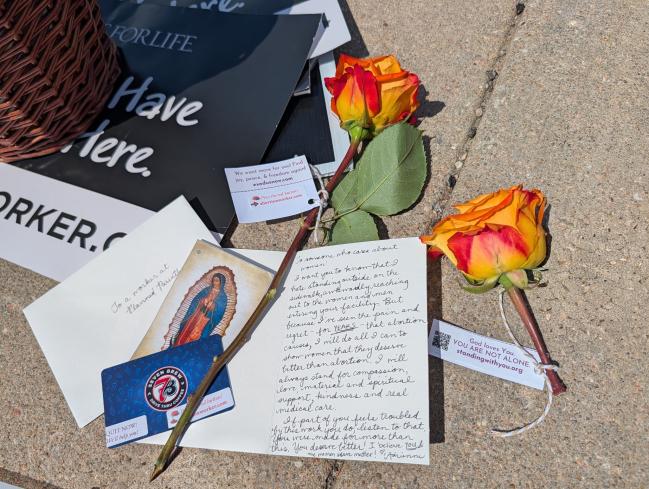 FORLIFE
Have
Here.
ORKER.C
We want more for you! Find
joy, peace, & freedom again!
To a worker at
Planned Parent
To someone who cares about
women -
I want you to know that I
hate standing outside on the
sidewalk, awkwardly reaching
out to the women and men
entering your facility. But
because I've seen the pain and
regret - for YEARS - that abortion
causes, I will do all I can to
show women that they deserve
better than abortion. I will
always stand for compassion,
love, material and spiritual
support, kindness, and real
medical care.
If part of you feels troubled
by this work you do, listen to that.
You were made for more than
this. You deserve better! I believe YOU &
the women above matter!
God loves You.
YOU ARE NOT ALONE
standingwithyou.org
SEVEN BREW
7B
DRIVE THRU COFFEE
QUIT NOW!